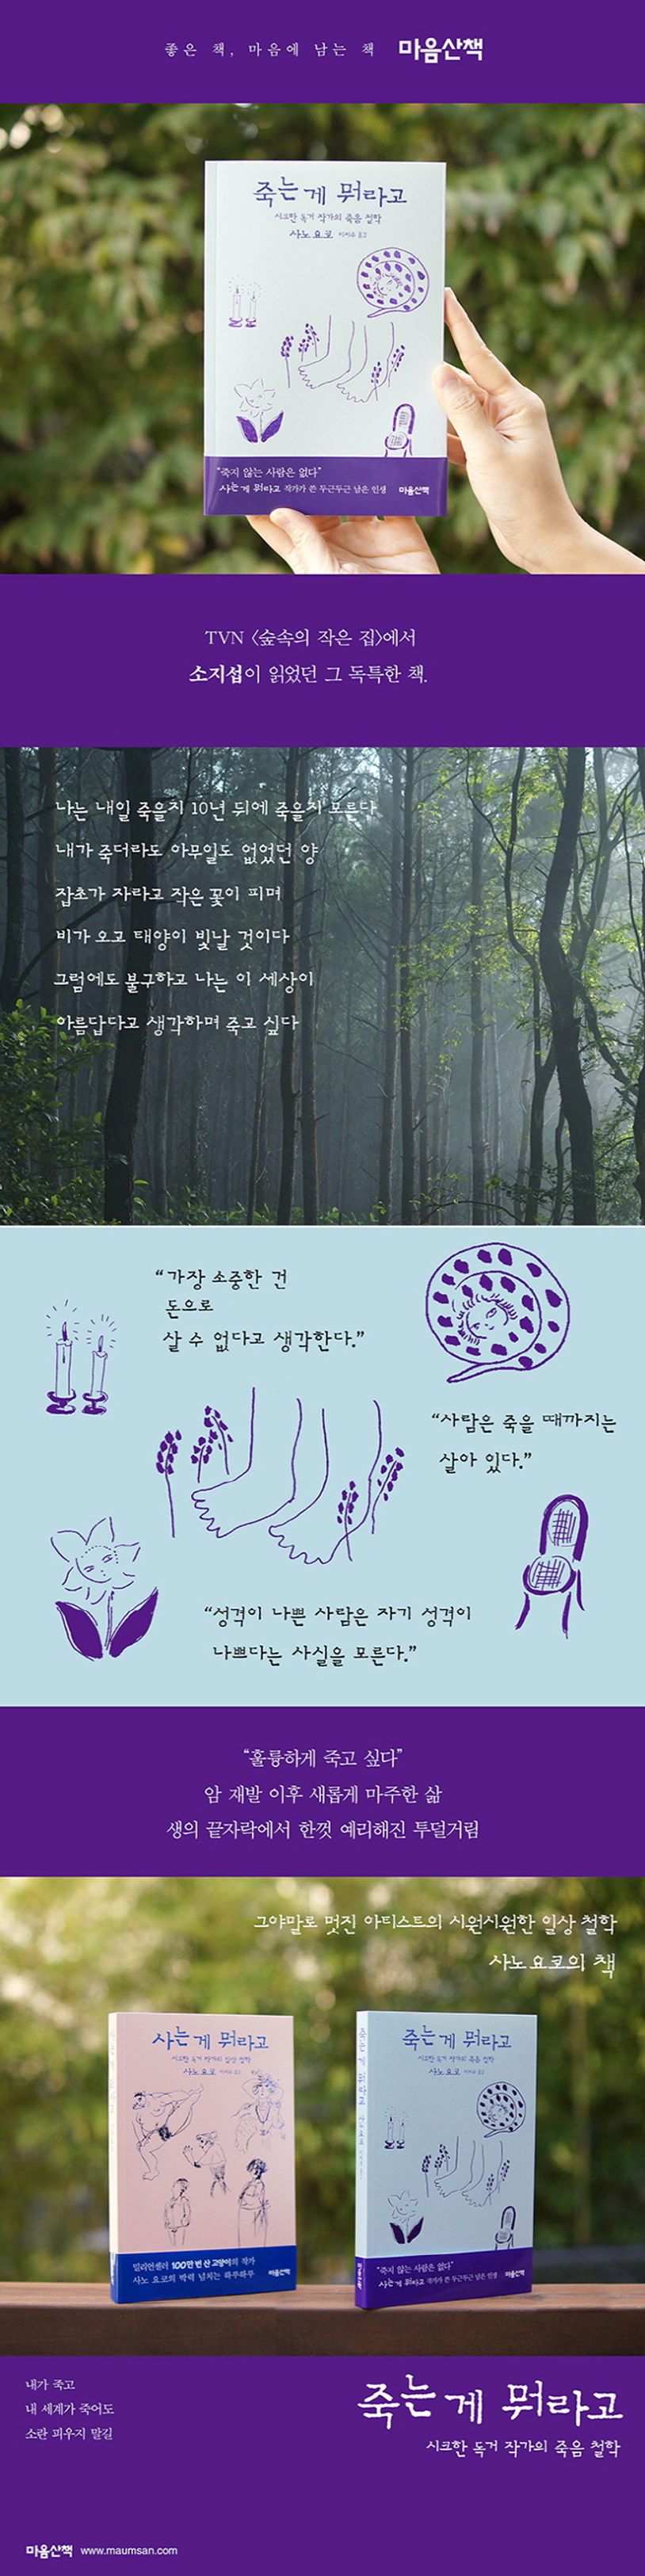 좋은 책, 마음에 남는 책 마음산책
죽는 게 뭐라고
시크한 독거 작가의 죽음 철학
사노 요코 이지수 옮김
"죽지 않는 사람은 없다"
사는 게 뭐라고 작가가 쓴 두근두근 남은 인생 마음산책
TVN <숲속의 작은 집>에서
소지섭이 읽었던 그 독특한 책.
나는 내일 죽을지 10년 뒤에 죽을지 모른다
내가 죽더라도 아무일도 없었던 양
잡초가 자라고 작은 꽃이 피며
비가 오고 태양이 빛날 것이다
그럼에도 불구하고 나는 이 세상이
아름답다고 생각하며 죽고 싶다
"가장 소중한 건
돈으로
살 수 없다고 생각한다."
"사람은 죽을 때까지는
살아 있다."
"성격이 나쁜 사람은 자기 성격이
나쁘다는 사실을 모른다."
"훌륭하게 죽고 싶다"
암 재발 이후 새롭게 마주한 삶
생의 끝자락에서 한껏 예리해진 투덜거림
그야말로 멋진 아티스트의 시원시원한 일상 철학
사노 요코의 책
사는 게 뭐라고
시크한 독거 작가의 일상 철학
사노 요코 이지수 옮김
밀리언셀러 100만 번 산 고양이의 작가
사노 요코의 박력 넘치는 하루하루 마음산책
죽는 게 뭐라고 사노 요코
죽는 게 뭐라고
시크한 독거 작가의 죽음 철학
사노 요코 이지수 옮김
"죽지 않는 사람은 없다"
사는 게 뭐라고 작가가 쓴 두근두근 남은 인생 마음산책
내가 죽고
내 세계가 죽어도
소란 피우지 말길
죽는 게 뭐라고
시크한 독거 작가의 죽음 철학
마음산책 www.maumsan.com